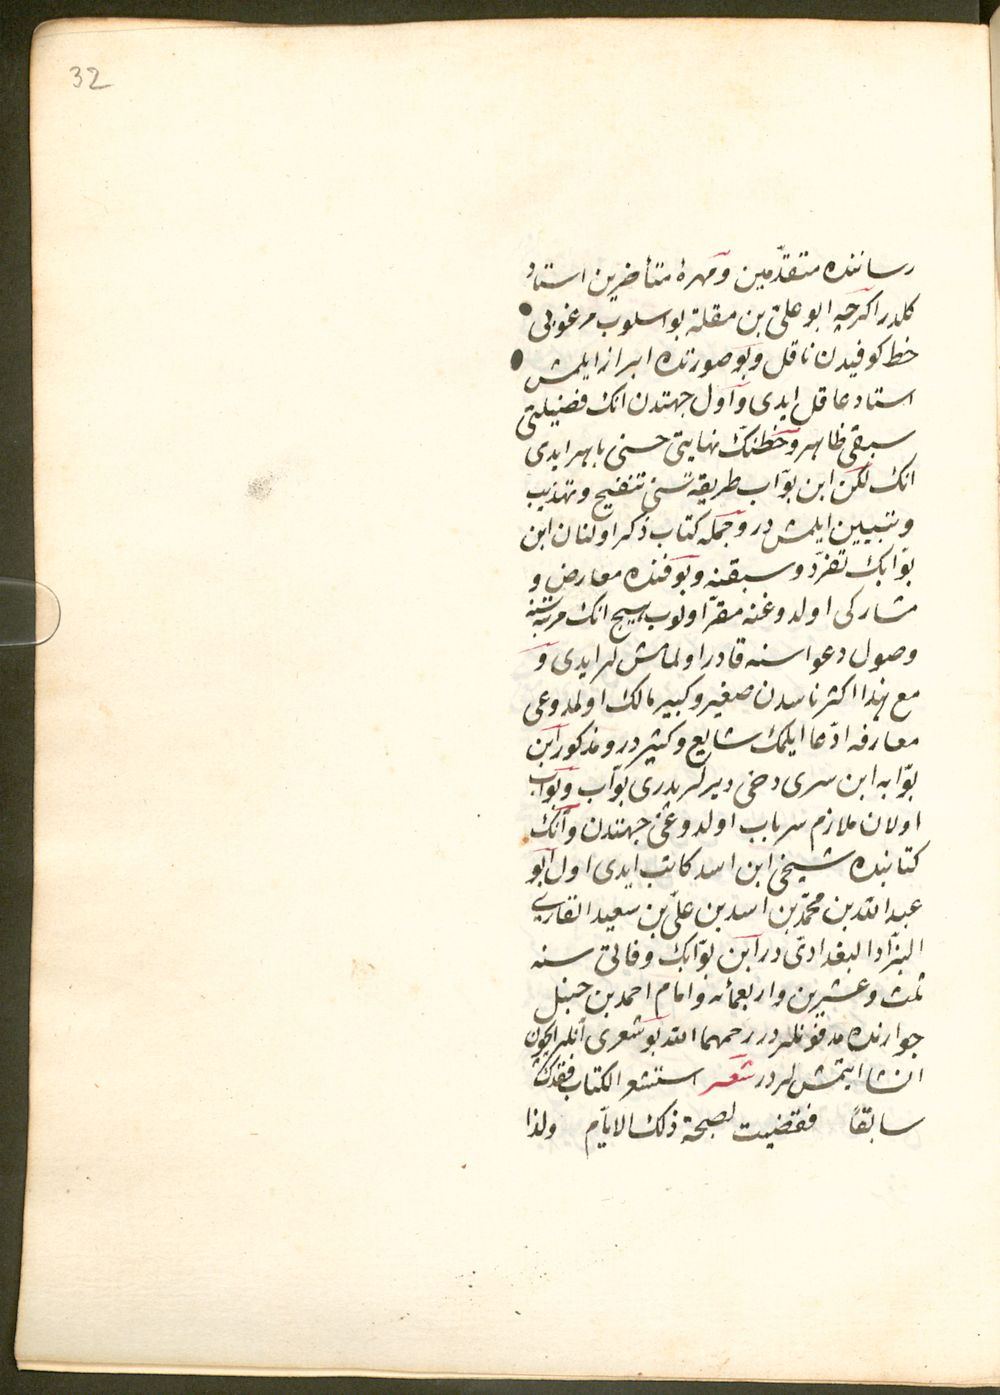 32
رساننده متقدّمین ومهرهٔ متأخرین استاد
کلدر اکرچه ابو علی بن مقلة بو اسلوب مرغوبی
خط کوفیدن ناقل وبو صورتده ابراز ایلمش
استاد عاقل ایدی واول جهتدن انک فضیلتی
سبقی ظاهر وخطنک نهایتی حسنی باهر ایدی
انک لکن ابن بوّاب طریقه سنی تنقیح وتهذیب
وتبیین ایلمش در وجمله کتاب ذکر اولنان ابن
بوّابک تفرّد وسبقنه وبو فنده معارض و
مشارکی اولدوغنه مقرّ اولوب هیچ انک مرتبه سنه
وصول دعواسنه قادر اولمامش لر ایدی و
مع هذا اکثر ناسدن صغیر وکبیر مالک اولمدوغی
معارفه ادّعا ایلمک شایع وکثیر در ومذکور ابن
بوّابه ابن ستری دخی دیرلر پدری بوّاب وبوّاب
اولان ملازم سر باب اولدوغی جهتدن وانک
کتابنده شیخی ابن اسد کاتب ایدی اول ابو
عبد الله بن محمّد بن اسد بن علی بن سعید القاری
البزّاد البغدادی در ابن بوّابک وفاتی سنه
ثلث وعشرین واربعمائه وامام احمد بن حنبل
جوارنده مدفونلر در رحمهما الله بو شعری انلر ایچون
انشا ایتمش لر در شعر استشعر الکتاب فقدک
سابقاً فقضیت لصحة ذلک الایّام ولذا